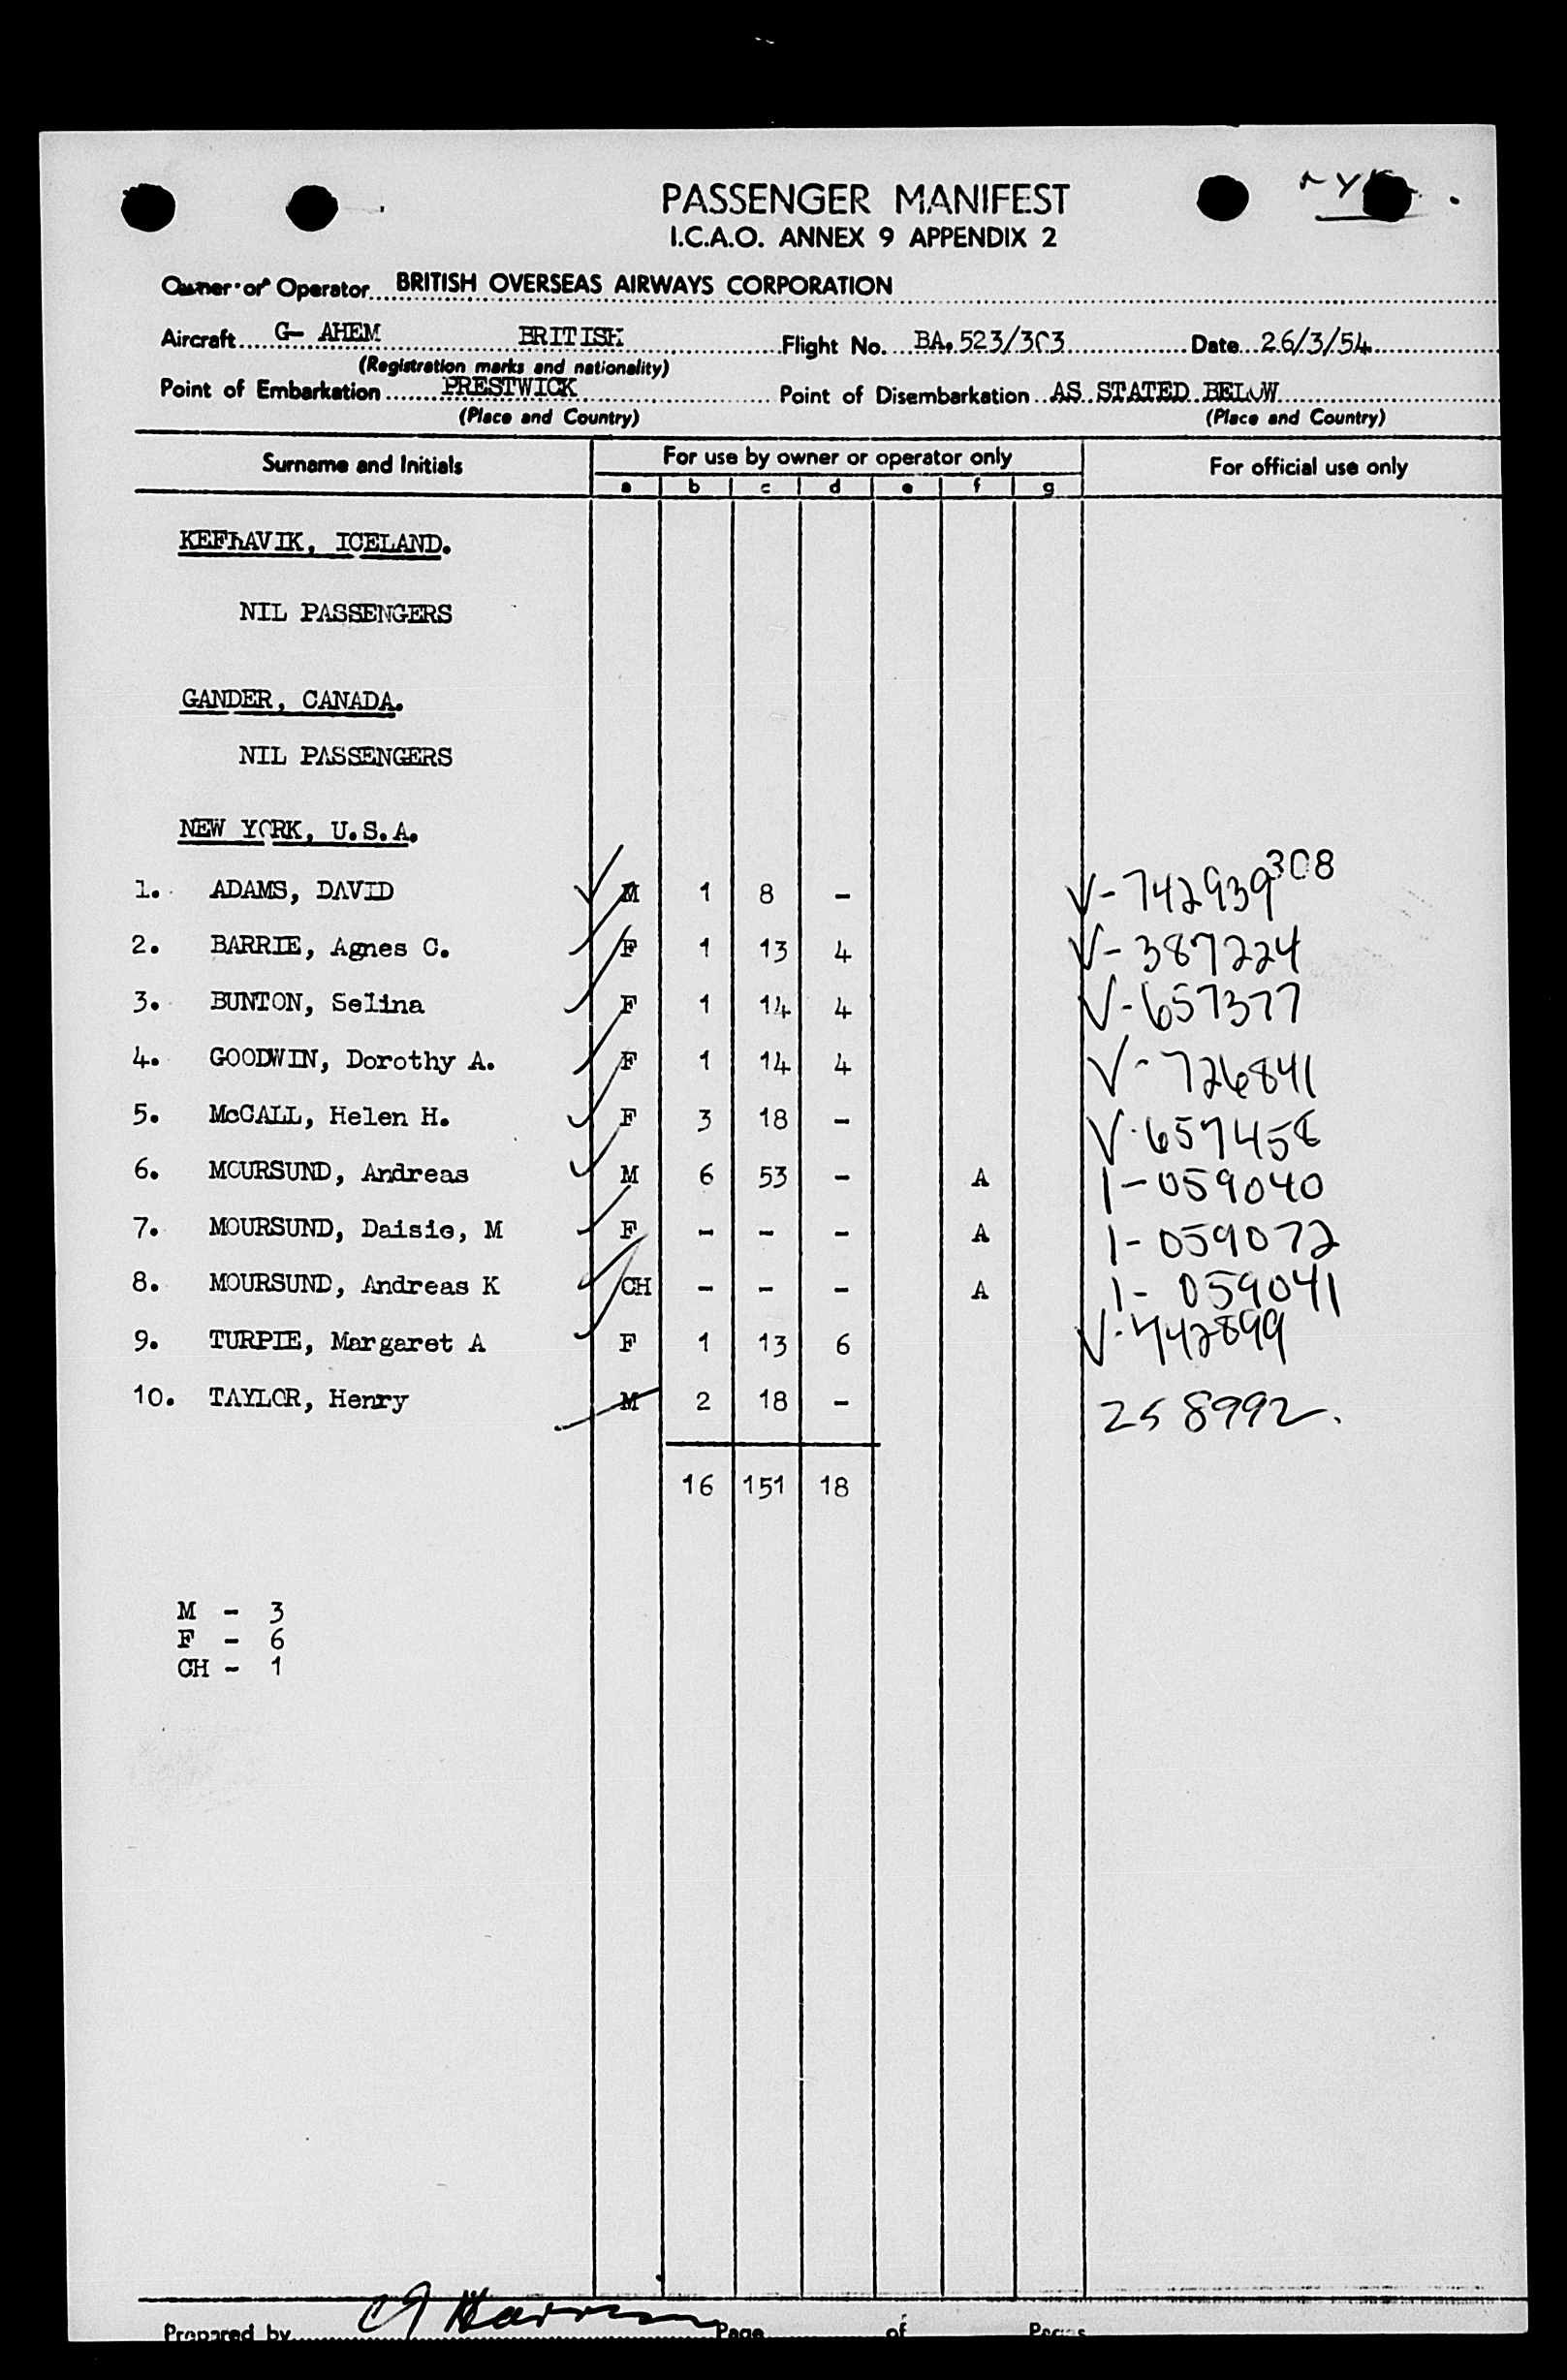 PASSENGER MANIFEST
I.C.A.O. ANNEX 9 APPENDIX 2
Owner or Operator BRITISH OVERSEAS AIRWAYS CORPORATION
Aircraft G- AHEM BRITISH Flight No. BA.523/303 Date 26/3/54
(Registration marks and nationality)
Point of Embarkation PRESTWICK Point of Disembarkation AS STATED BELOW
(Place and Country) (Place and Country)
Surname and Initials For use by owner or operator only For official use only
a b c d e f g
KEFLAVIK, ICELAND.
NIL PASSENGERS
GANDER, CANADA.
NIL PASSENGERS
NEW YORK, U.S.A.
308
1. ADAMS, DAVID M 1 8 - V-742939
2. BARRIE, Agnes C. F 1 13 4 V-387224
3. BUNTON, Selina F 1 14 4 V-657377
4. GOODWIN, Dorothy A. F 1 14 4 V-726841
5. McCALL, Helen H. F 3 18 - V-657458
6. MOURSUND, Andreas M 6 53 - A 1-059040
7. MOURSUND, Daisie, M F - - - A 1-059072
8. MOURSUND, Andreas K CH - - - A 1-059041
9. TURPIE, Margaret A F 1 13 6 V-742899
10. TAYLOR, Henry M 2 18 - 258992.
16 151 18
M - 3
F - 6
CH - 1
Prepared by Page of Pages